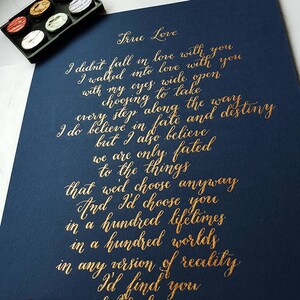 True Love
I didn't fall in love with you
I walked into love with you
with my eyes wide open
choosing to take
every step along the way
I do believe in fate and destiny
but I also believe
we are only fated
to the things
that we'd choose anyway
And I'd choose you
in a hundred lifetimes
in a hundred worlds
in any version of reality
I'd find you